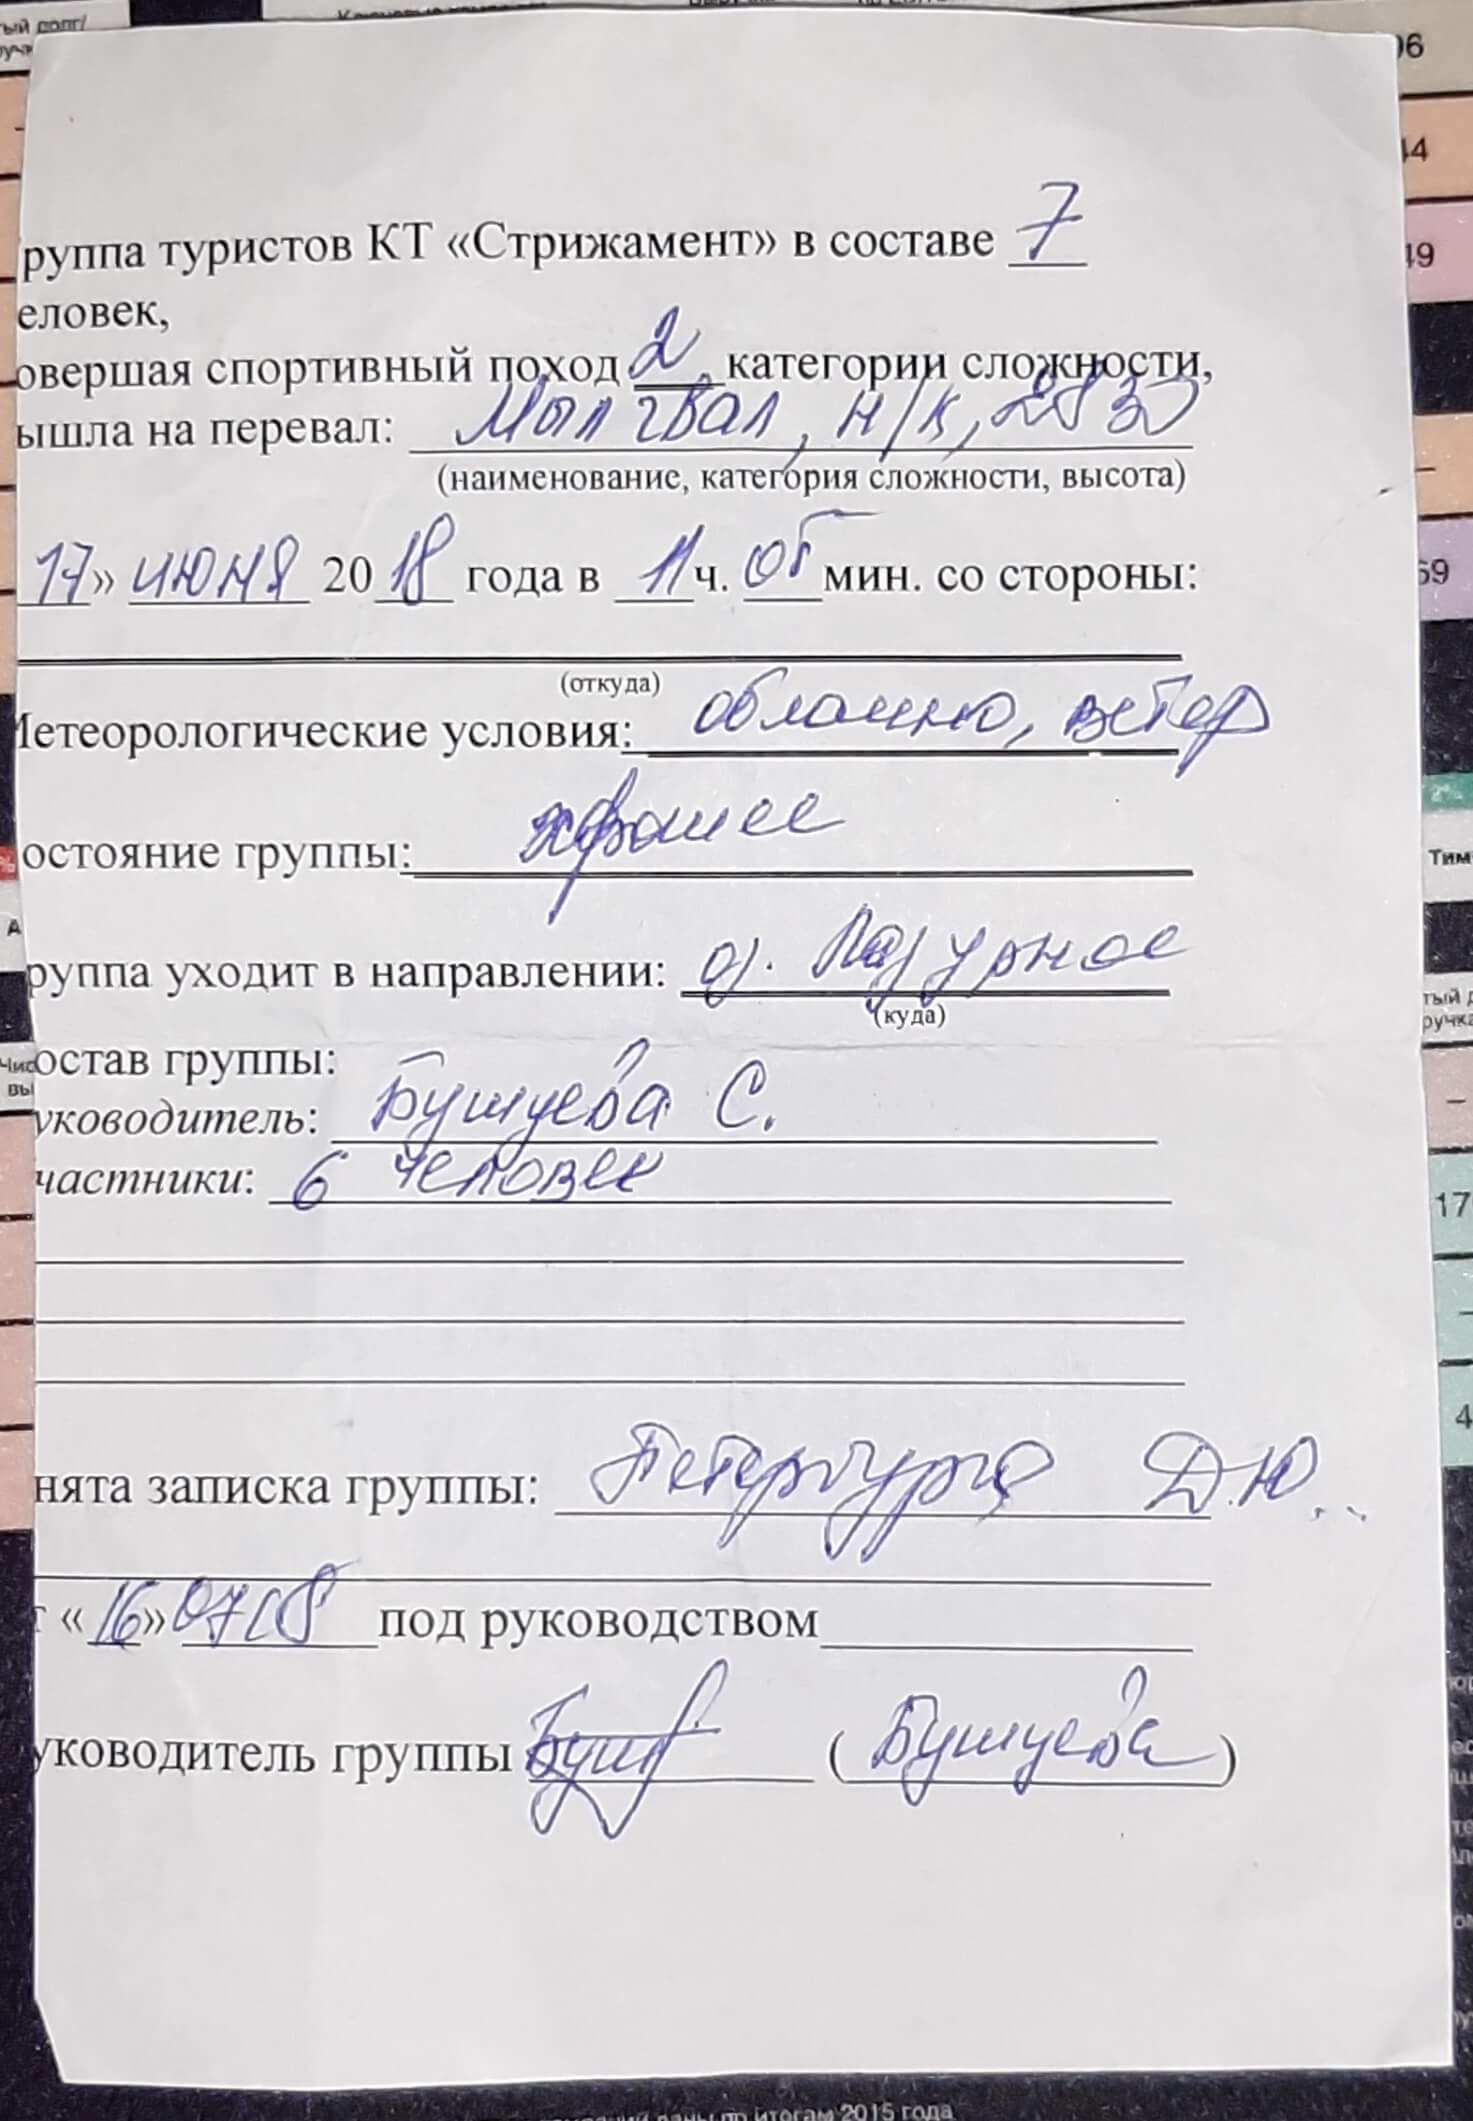 руппа туристов КТ «Стрижамент» в составе 7
еловек,
овершая спортивный поход 2 категории сложности,
ышла на перевал: Мылгвал, н/к, 2830
(наименование, категория сложности, высота)
17» июня 2018 года в 11 ч. 05 мин. со стороны:
(откуда)
Метеорологические условия: облачно, ветер
остояние группы: хорошее
руппа уходит в направлении: оз. Лазурное
(куда)
остав группы:
уководитель: Бушуева С.
частники: 6 человек
нята записка группы: Петербурга Д.Ю.
т «16» 07 18 под руководством
уководитель группы Буш (Бушуева)
06
44
49
59
Тим
17
4
по итогам 2015 года